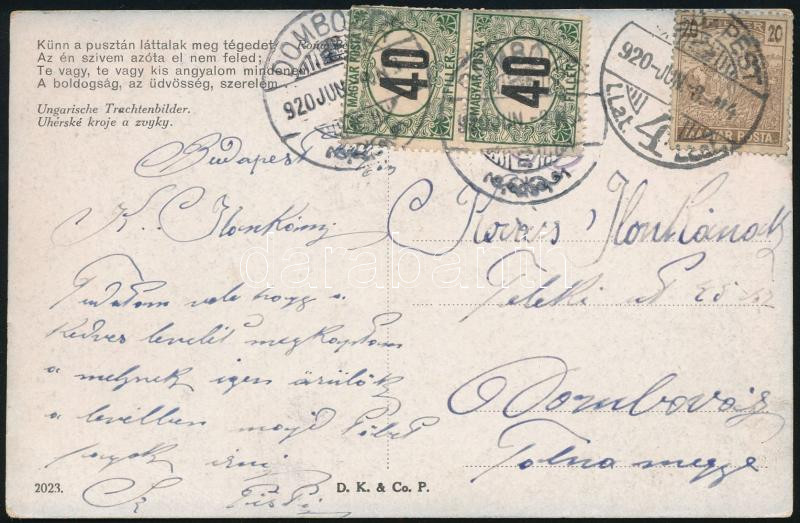 Künn a pusztán láttalak meg tégedet
Az én szivem azóta el nem feled;
Te vagy, te vagy kis angyalom mindenem
A boldogság, az üdvösség, szerelem
Ungarische Trachtenbilder.
Uhérské kroje a zvyky.
DOMBO
920 JUN
MAGYAR POSTA
40
FILLÉR
MAGYAR POSTA
40
FILLÉR
DOMBO
PEST
920-JUN
4
20
MAGYAR POSTA
Budapest
K. Ilonkám
Tudatom vele hogy a
kedves levelét megkaptam
a melynek igen örülök
a levélben majd többet
fogok irni
Sz Pista
Kovács Ilonkának
Teleki ut 25 sz
Dombovár
Tolna megye
darabanth
2023.
D. K. & Co. P.